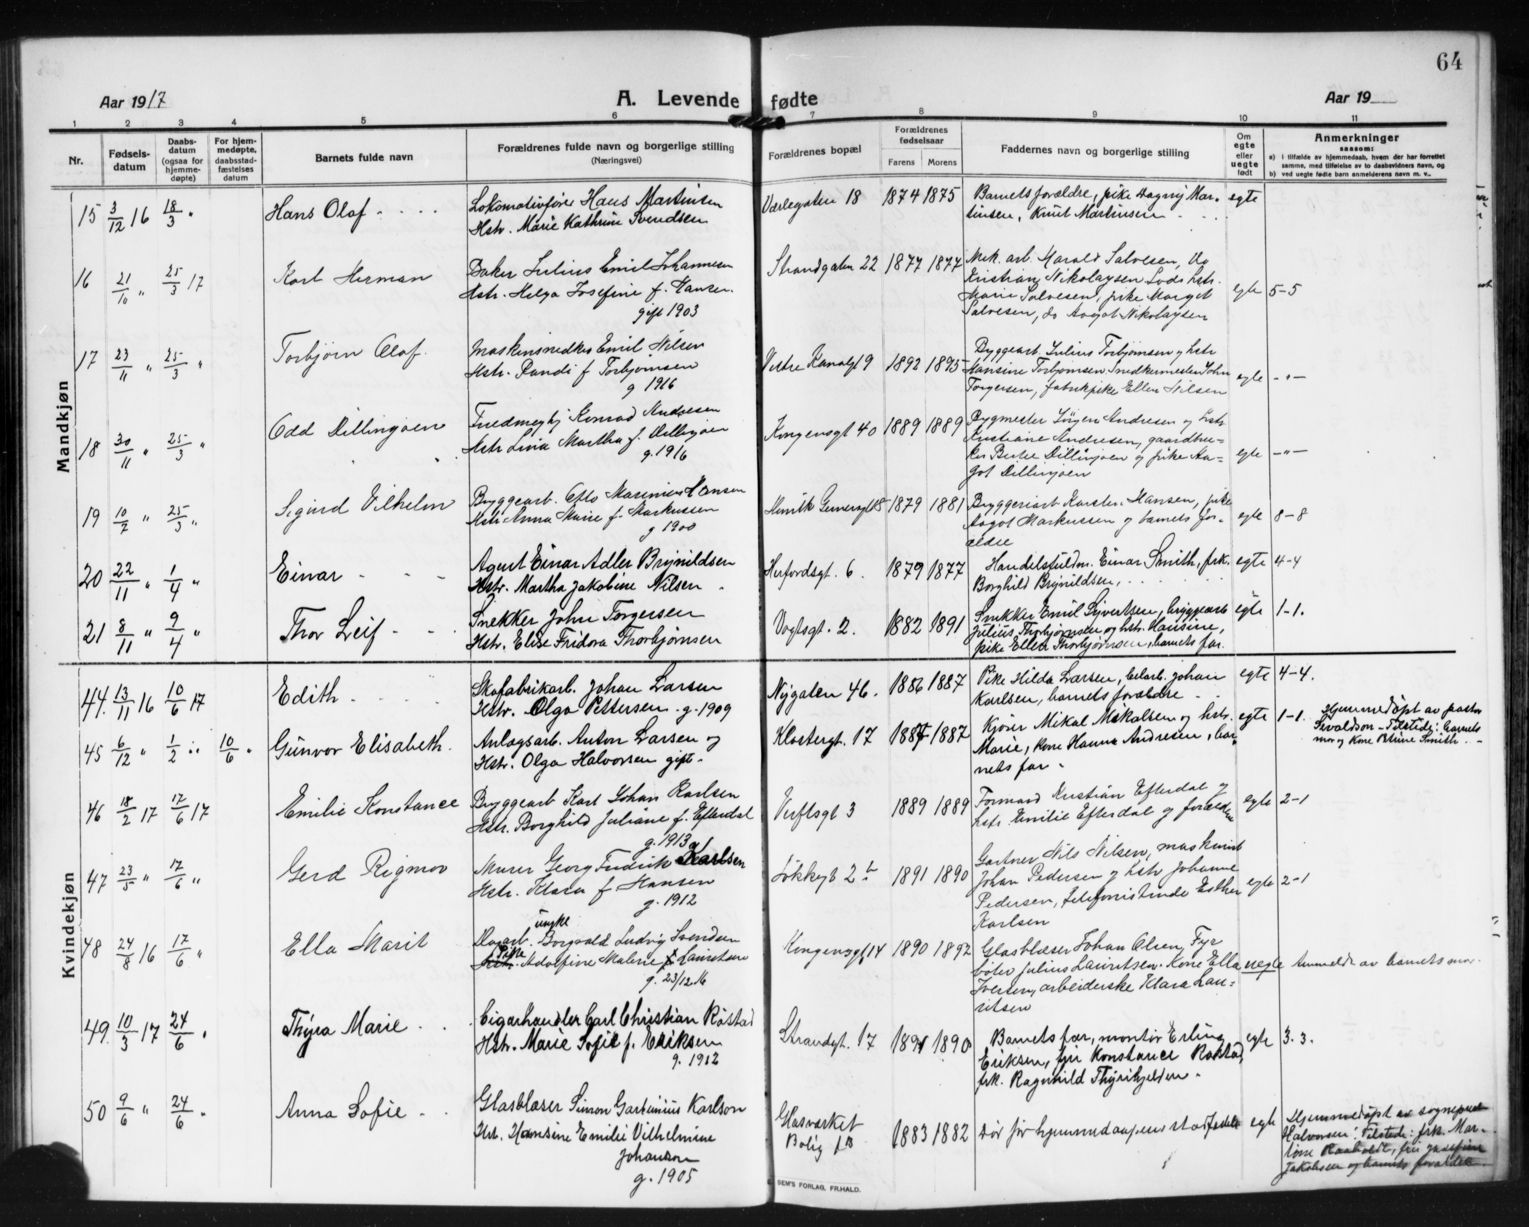 64
Aar 1917
A. Levende fødte
Aar 19
1 2 3 4 5 6 7 8 9 10 11
Nr.
Fødsels-
datum
Daabs-
datum
(ogsaa for
hjemme-
døpte)
For hjem-
medøpte,
daabsstad-
fæstelses
datum
Barnets fulde navn
Forældrenes fulde navn og borgerlige stilling
(Næringsvei)
Forældrenes bopæl
Forældrenes
fødselsaar
Farens Morens
Faddernes navn og borgerlige stilling
Om
egte
eller
uegte
født
Anmerkninger
saasom:
a) i tilfælde av hjemmedaab, hvem der har forrettet
samme, med tilføielse av to daabsvidners navn, og
b) ved uegte fødte barn anmelderens navn m. v.
Mandkjøn
15 3/12 16 18/3 " Hans Olaf
Lokomotivfører Hans Martinsen
Hstr. Marie Kathrine Svendsen
Værlegaten 18 1874 1875
Barnets forældre, pike Dagny Mar-
tinsen, Knut Martinsen
egte
16 21/10 " 25/3 17 Karl Herman
Baker Julius Emil Johannesen
Hstr. Helga Josefine f. Hansen
gift 1903
Strandgaten 22 1877 1877
Mek. arb. Harald Salvesen, Do
Kristian Nikolaysen Lods hstr.
Marie Salvesen, pike Marget
Salvesen, do Aagot Nikolaysen
egte 5-5
17 23/11 " 25/3 " Torbjørn Olaf
Maskinsnedker Emil Nilsen
Hstr. Randi f Torbjørnsen
g 1916
Vestre Kanalgt 9 1892 1895
Byggearb. Julius Torbjørnsen og hstr
Hansine Torbjørnsen Snedkermester John
Torgersen, fabrikpike Ellen Nilsen
egte -"-
18 30/11 " 25/3 " Odd Dillingøen
Konrad Andresen
Hstr Lina Martha f. Dillingøen
g. 1916
Kongensgt 40 1889 1889
Bygmester Jørgen Andresen og hstr
Kristiane Andresen, gaardbru-
ker Dillingøen og pike Aa-
got Dillingøen
egte -"-
19 10/2 " 25/3 " Sigurd Vilhelm
Bryggearb. Otto Marinius Hansen
Hstr Anna Marie f. Markussen
g 1900
Henrik Gernersgt 8 1879 1881
Bryggeriarb Karsten Hansen, pike
Aagot Markussen og barnets for-
ældre
egte 8-8
20 22/11 " 1/4 " Einar
Agent Einar Adler Brynildsen
Hstr. Martha Jakobine Nilsen
Herfordsgt. 6. 1879 1877
Handelsfuldm. Einar Smith, frk.
Borghild Brynildsen,
egte 4-4
21 8/11 " 9/4 " Thor Leif
Snekker John Torgersen
Hstr. Elise Fridora Thorbjørnsen
Vogtsgt. 2. 1882 1891
Snekker Emil Syvertsen, bryggearb
Julius Thorbjørnsen og hstr. Hansine,
pike Ellen Thorbjørnsen, barnets far.
egte 1-1.
Kvindekjøn
44. 13/11 16 10/6 17 Edith
Skofabrikarb. Johan Larsen
Hstr. Olga Pettersen. g. 1909
Nygaten 46. 1886 1887
Pike Hilda Larsen, Johan
Karlsen, barnets forældre
egte 4-4.
45 6/12 " 1/2 " 10/6 " Gunvor Elisabeth.
Anlægsarb. Anton Larsen og
Hstr. Olga Halvorsen gift.
Klostergt. 17 1884 1887
Kjører Mikal Mikalsen og hstr.
Marie, kone Hanna Andresen, bar-
nets far.
egte 1-1.
Hjemmedøpt av pastor
Sivaldson - Tilstede: barnets
mor og kone Petrine Smith.
46 18/2 17 17/6 17 Emilie Konstance
Bryggearb Karl Johan Karlsen
Hstr. Borghild Juliane f. Efterdal
g. 1913
Verftsgt 3 1889 1889
Formand Kristian Efterdal og
hstr Emilie Efterdal og forældrene
egte 2-1
47 23/5 " 17/6 " Gerd Rigmor
Murer Georg Fredrik Karlsen
Hstr. Klara f Hansen
g. 1912
Løkkegt 2b 1891 1890
Gartner Nils Nilsen, maskinist
Johan Pedersen og hstr Johanne
Pedersen, telefonistinde Esther
Karlsen
egte 2-1
48 24/8 16 17/6 " Ella Marit
ungke
Dagarb. Borgvald Ludvig Svendsen
Pike Adolfine Malene Lauritsen
g. 23/12 16
Kongensgt 14 1890 1892
Glasblæser Johan Olsen, Fyr-
bøter Julius Lauritsen. Kone Ella
Iversen, arbeiderske Klara Lau-
ritsen
uegte Anmeldt av barnets mor.
49. 10/3 17 24/6 " Thyra Marie
Cigarhandler Carl Christian Røstad
Hstr. Marie Sofie f. Eriksen
g. 1912
Strandgt. 17 1891 1890
Barnets far, montør Erling
Eriksen, fru Konstance Røstad,
frk. Ragnhild Thyrihjelden.
egte 3.3.
50 9/6 " 24/6 " Anna Sofie
Glasblæser Simon Gartinius Karlson
Hst. Hansine Emilie Vilhelmine
Johansen
g. 1905
Glasværket
Bolig 18 1883 1882
Dør før hjemmedaapens stadfæstelse
egte
Hjemmedøpt av sogneprest
Halvorsen. Tilstede: frk. Mar-
tine Raaholdt, fru Josefine
Jakobsen og barnets forældre
SEM'S FORLAG, FR.HALD.